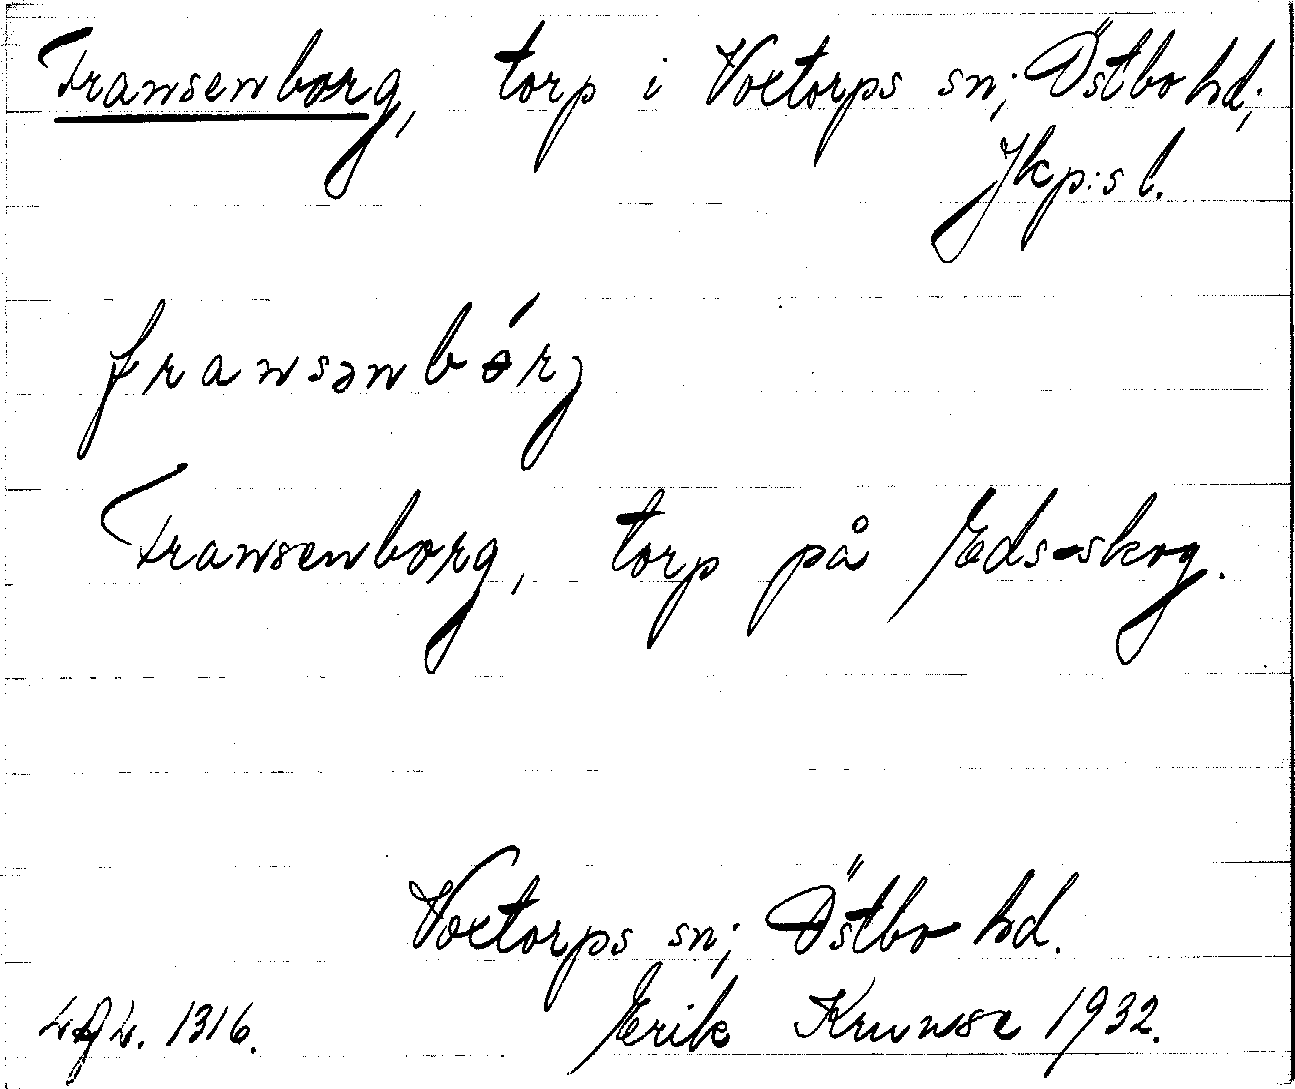 Fransenborg, torp i Voxtorps sn; Östbo hd;
Jkp:s l.
fransənbɵ́rj
Fransenborg, torp på Eds-skog.
Voxtorps sn; Östbo hd.
Erik Krunse 1932.
1316.